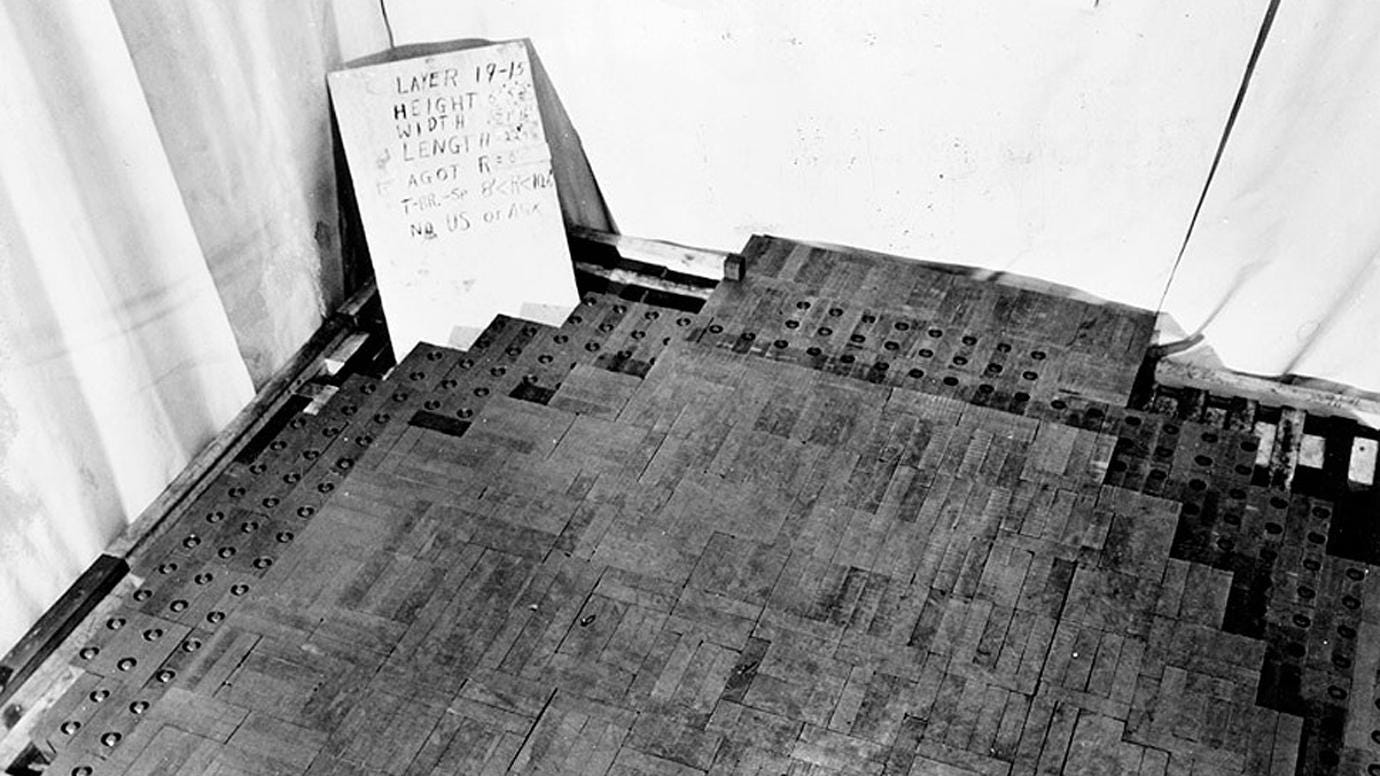 LAYER 19-15
HEIGHT
WIDTH
LENGTH
AGOT R=
T-BR.-SP 8"<R<
NO US OR AGX